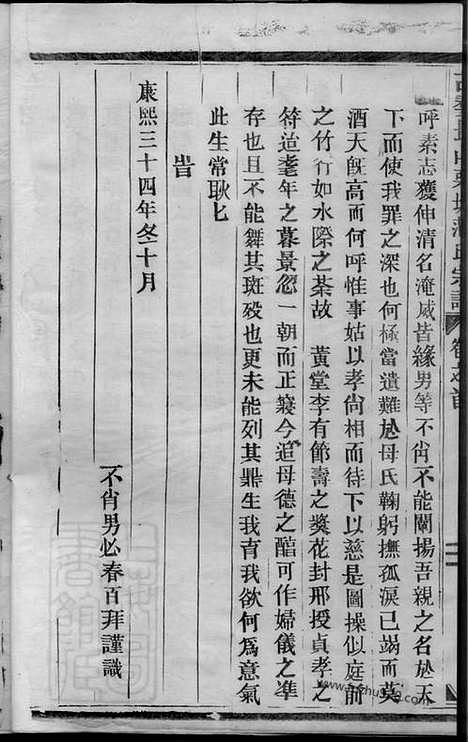 呼素志獲伸清名淹威皆緣男等不肖不能闡揚吾親之名於天
下而使我罪之深也何極當遺難於母氏鞠躬撫孤淚已竭而莫
酒天既高而何呼惟事姑以孝尙相而待下以慈是圖操似庭前
之竹行如水際之荼故　黃堂李有節壽之獎花封邢授貞孝之
符迨耄年之暮景忽一朝而正寢今追母德之醕可作婦儀之凖
存也且不能舞其斑殁也更未能列其鼎生我育我欲何爲意氣
此生常耿匕
旹
康熙三十四年冬十月
不肖男必春百拜謹識
宗譜
卷之首